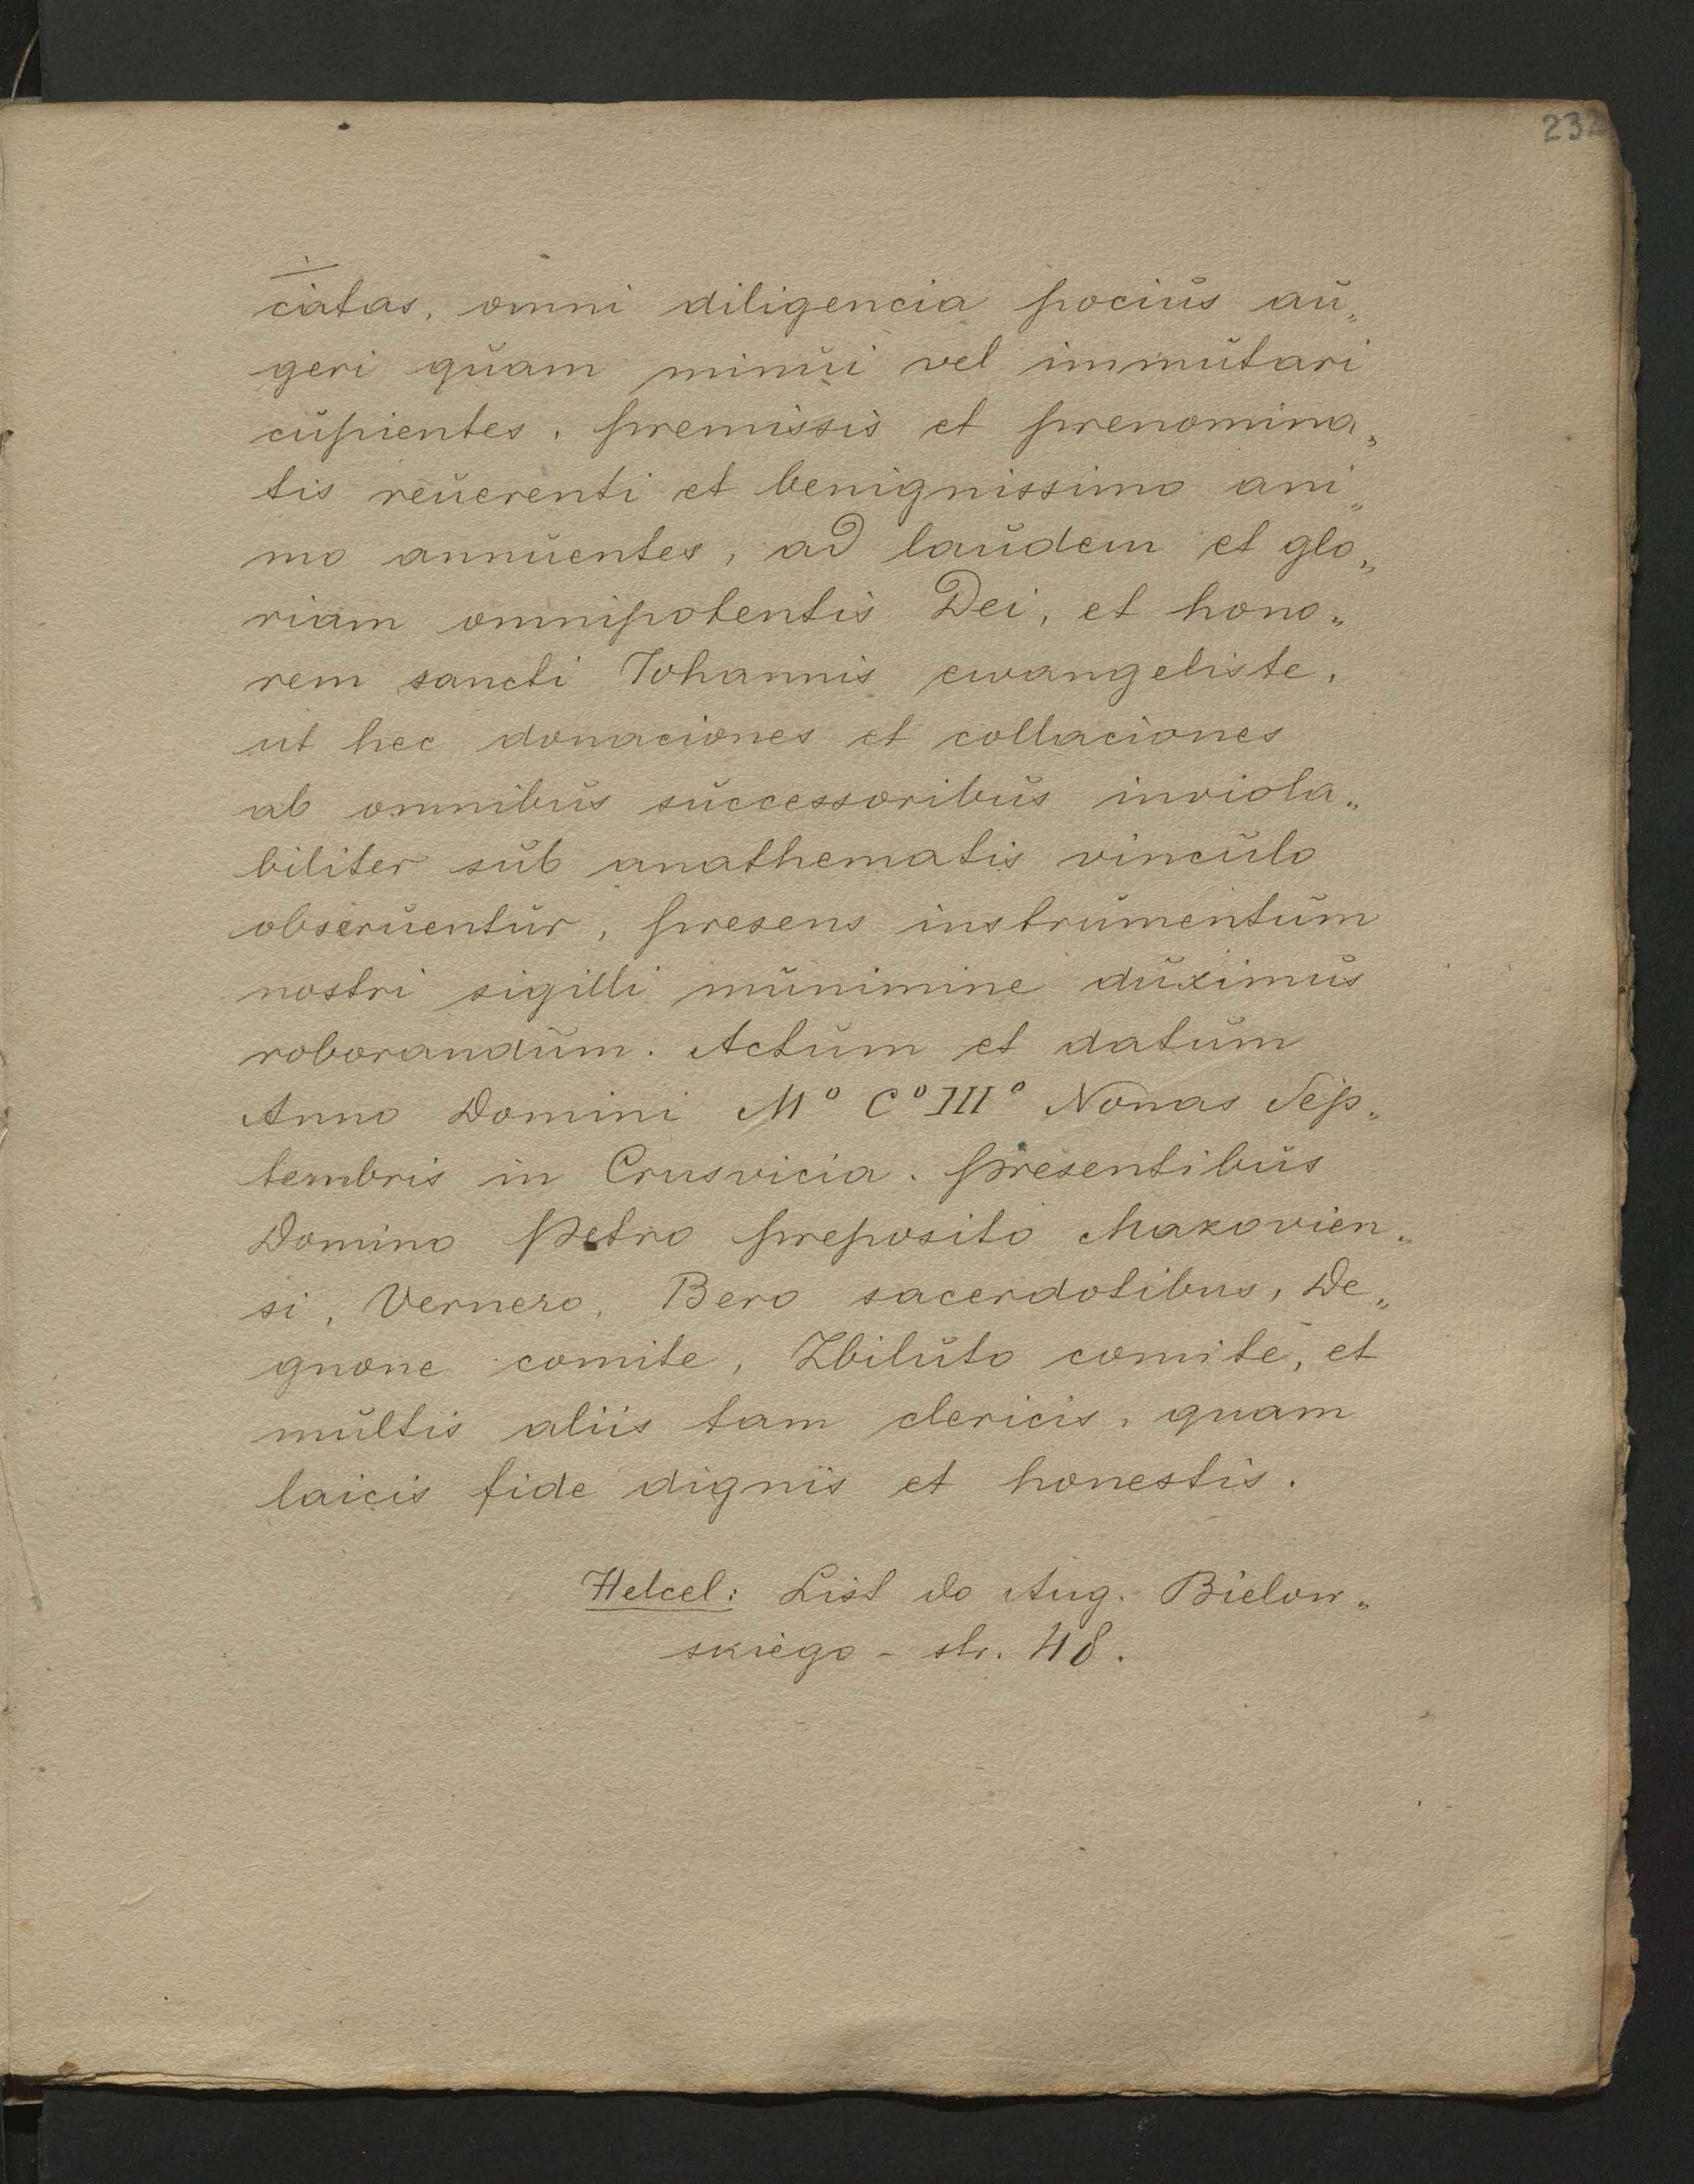 232
ciatas, omni diligencia pocius au„
geri quam minui vel immutari
cupientes, premissis et prenomina„
tis reuerenti et benignissimo ani„
mo annuentes, ad laudem et glo„
riam omnipotentis Dei, et hono„
rem sancti Iohannis ewangeliste,
ut hec donaciones et collaciones
ab omnibus successoribus inviola„
biliter sub anathematis vinculo
obseruentur, presens instrumentum
nostri sigilli munimine duximus
roborandum. Actum et datum
Anno Domini M° C° III° Nonas Sep„
tembris in Crusvicia. presentibus
Domino Petro preposito Makovien„
si, Vernero, Bero sacerdotibus, De„
gnone comite, Zbiluto comite, et
multis aliis tam clericis, quam
laicis fide dignis et honestis.
Helcel: List do Aug. Bielow„
skiego - str. 48.